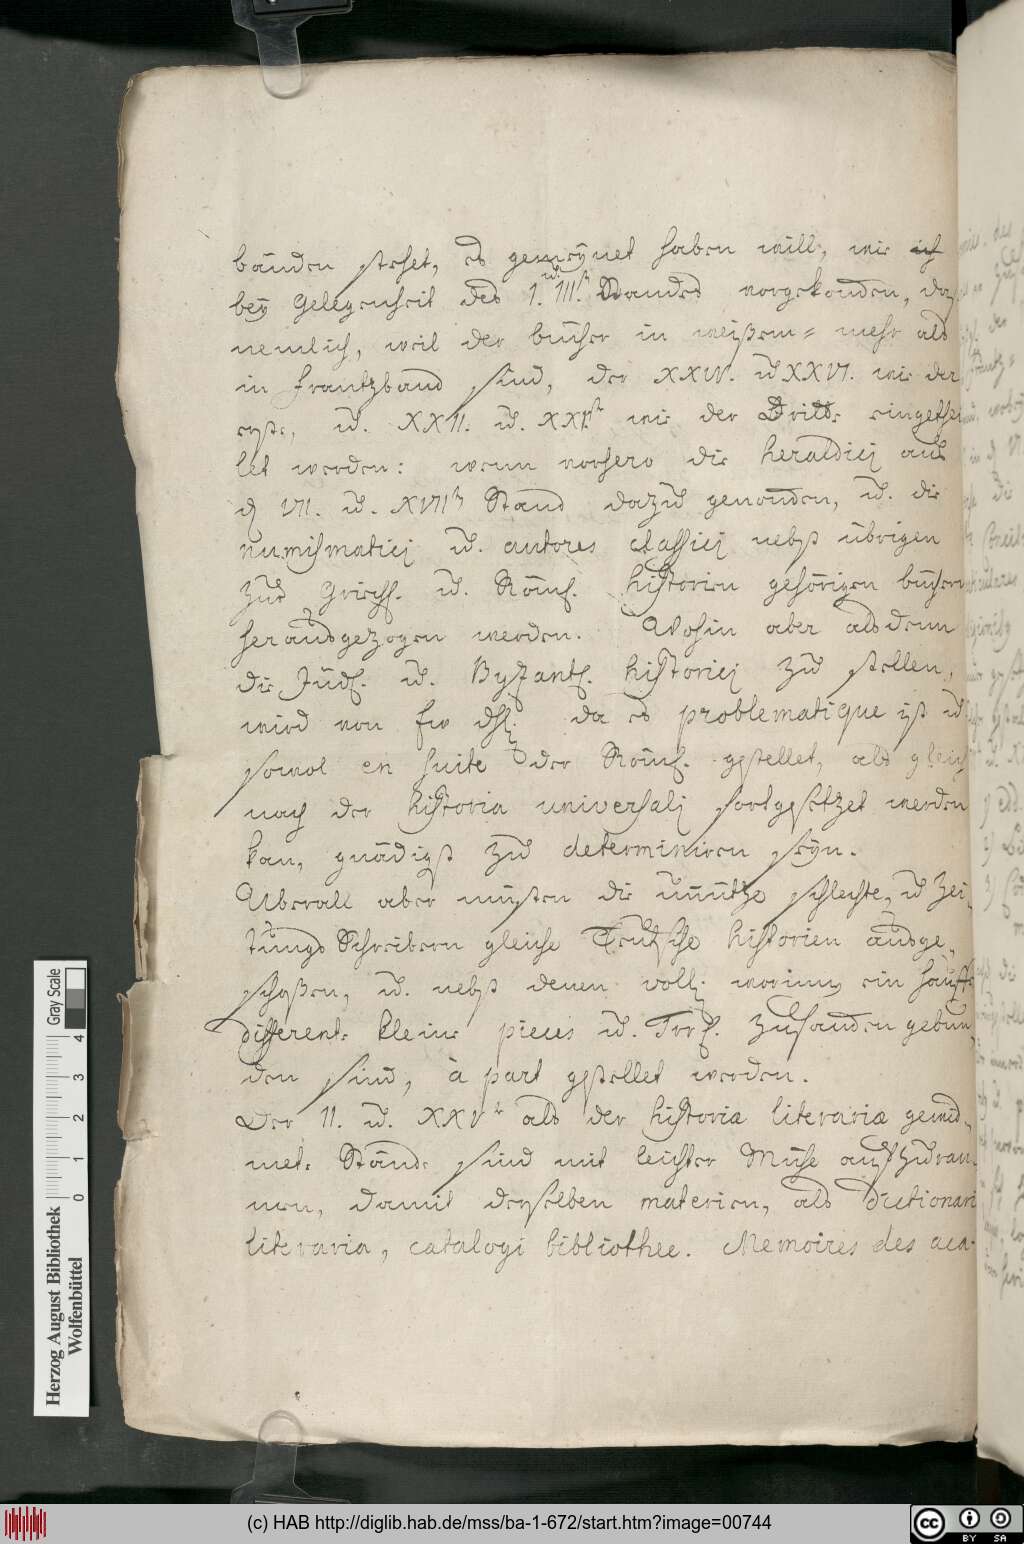 bänden stehet, es gemeynet haben will, wie ich
bey Gelegenheit des I. u. III.ten Standes vorgekommen, daß
nemlich, weil der bücher in weißem- mehr als
in Frantzband sind, der XXIV. u. XXVI. wie der
erste, u. XXII. u. XXV.te wie der Dritte eingethei
let werden: wenn vorhero die heraldici aus
d. VII. u. XVII.ten Stand dazu genommen, u. die
numismatici u. autores classici nebst übrigen
zur Griech. u. Röm. historien gehörigen büchern
herausgezogen werden. Wohin aber alsdenn
die Jüd. u. Byzant. historici zu stellen,
wird von Ew. da es problematique ist u.
sowol en suite der Röm. gestellet, als gleich
nach der historia universali fortgesetzet werden
kan, gnädigst zu determiniren seyn.
Uberall aber müsten die unnütze schlechte, u. Zei-
tungs Schreibern gleiche Teutsche historien ausge-
schoßen, u. nebst denen voll. worinn ein hauffe
different. kleine pieces u. Tract. zusammen gebun
den sind, à part gestellet werden.
Der II. u. XXV.te als der historiæ literariæ gewid-
mete Stände sind mit leichter Mühe aufzuräu-
men, damit dieselben materien, als dictionari
literaria, catalogi bibliothec. Memoires des aca-
Herzog August Bibliothek
Wolfenbüttel
Gray Scale
0 1 2 3 4
(c) HAB http://diglib.hab.de/mss/ba-1-672/start.htm?image=00744
cc BY SA